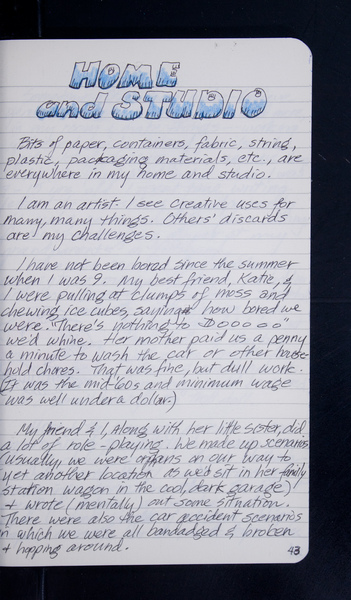 HOME
and STUDIO
Bits of paper, containers, fabric, string,
plastic, packaging materials, etc., are
everywhere in my home and studio.
I am an artist. I see creative uses for
many, many things. Others' discards
are my challenges.
I have not been bored since the summer
when I was 9. My best friend, Katie, &
I were pulling at clumps of moss and
chewing ice cubes, saying how bored we
were. "There's nothing to Dooooo"
we'd whine. Her mother paid us a penny
a minute to wash the car or other house-
hold chores. That was fine, but dull work.
(It was the mid-60s and minimum wage
was well under a dollar.)
My friend & I, along with her little sister, did
a lot of role-playing. We made up scenarios
(usually, we were orphans on our way to
yet another location as we'd sit in her family
station wagon in the cool, dark garage)
+ wrote (mentally) out some situation.
There were also the car accident scenarios
in which we were all bandadged & broken
+ hopping around.
43